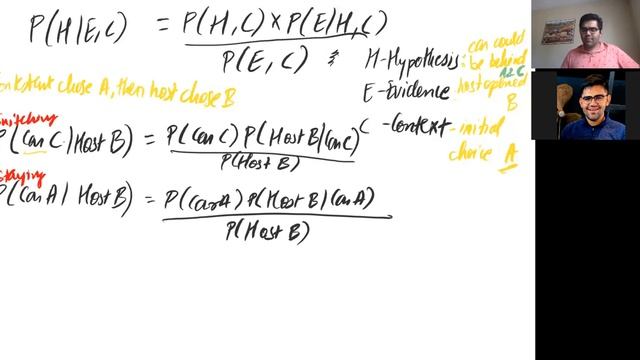 P(H|E,C) = P(H,C) x P(E|H,C)
P(E,C)
H-Hypothesis: can could be behind A2C
E-Evidence: host opened B
C-context - initial choice A
chose A, then host chose B
Switching
P(Car C | Host B) = P(Car C) P(Host B | Car C)
P(Host B)
Staying
P(Car A | Host B) = P(Car A) P(Host B | Car A)
P(Host B)